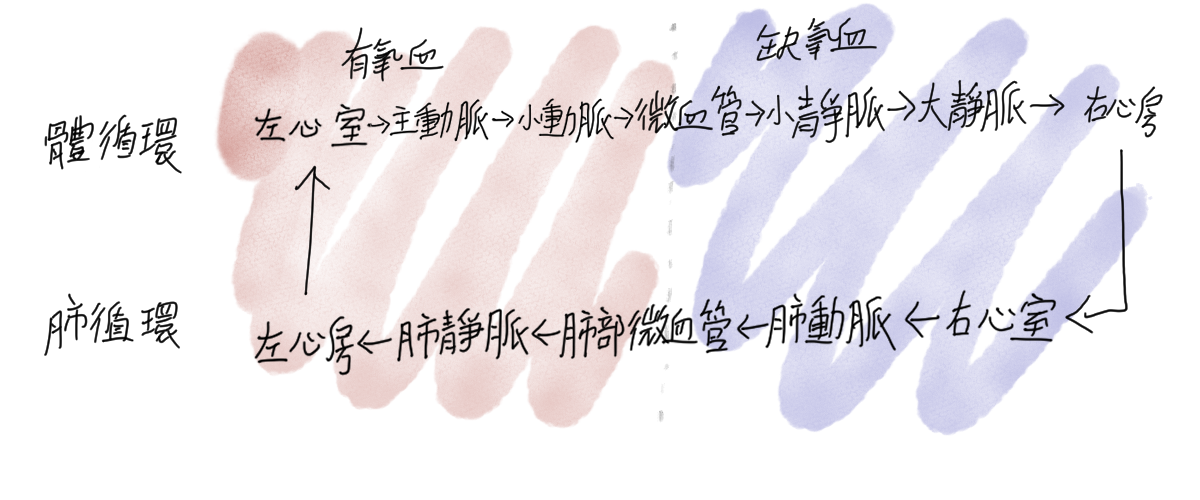 有氧血 缺氧血
體循環 左心室→主動脈→小動脈→微血管→小靜脈→大靜脈→右心房
肺循環 左心房←肺靜脈←肺部微血管←肺動脈←右心室